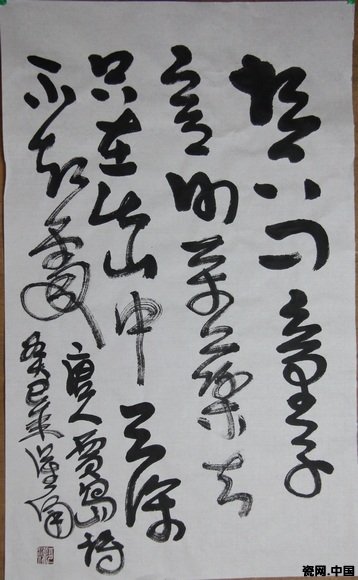 松下问童子
言师采藥去
只在此山中云深
不知處
唐人贾島诗
癸巳年
瓷网.中国